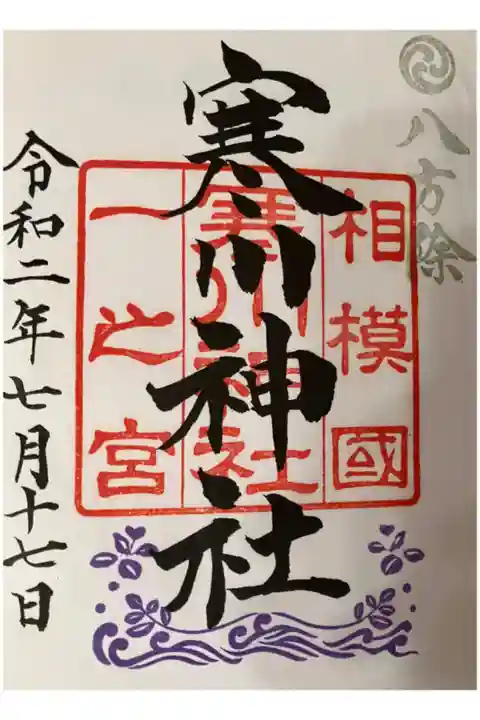 八方除
相模國
寒川神社
一之宮
寒川神社
令和二年七月十七日